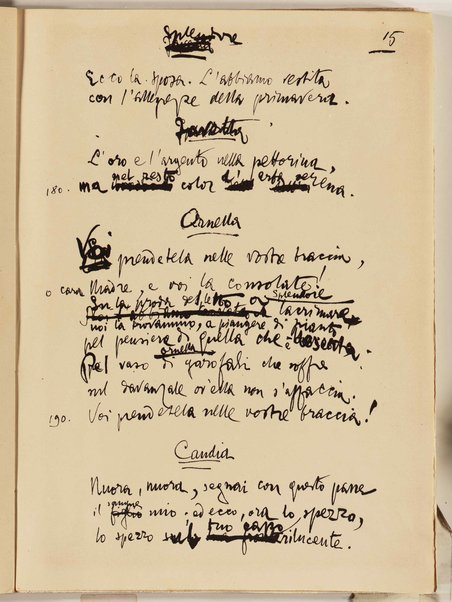 Splendore
15
Ecco la sposa. L'abbiamo vestita
con l'allegrezze della primavera.
Favetta
L'oro e l'argento nella pettorina,
180. ma nel resto color d'erba serena.
Ornella
Voi prendetela nelle vostre braccia,
o cara Madre, e voi la consolate!
Splendore
In la proda del letto or lacrimare
noi la trovammo, a piangere di pianto
pel pensiere di quella che è
Ornella
Pel vaso di garofali che soffre
sul davanzale ov'ella non s'affaccia.
190. Voi prendetela nelle vostre braccia!
Candia
Nuora, nuora, segnai con questo pane
il sangue mio. ad ecco, ora lo spezzo,
lo spezzo sul tuo capo rilucente.